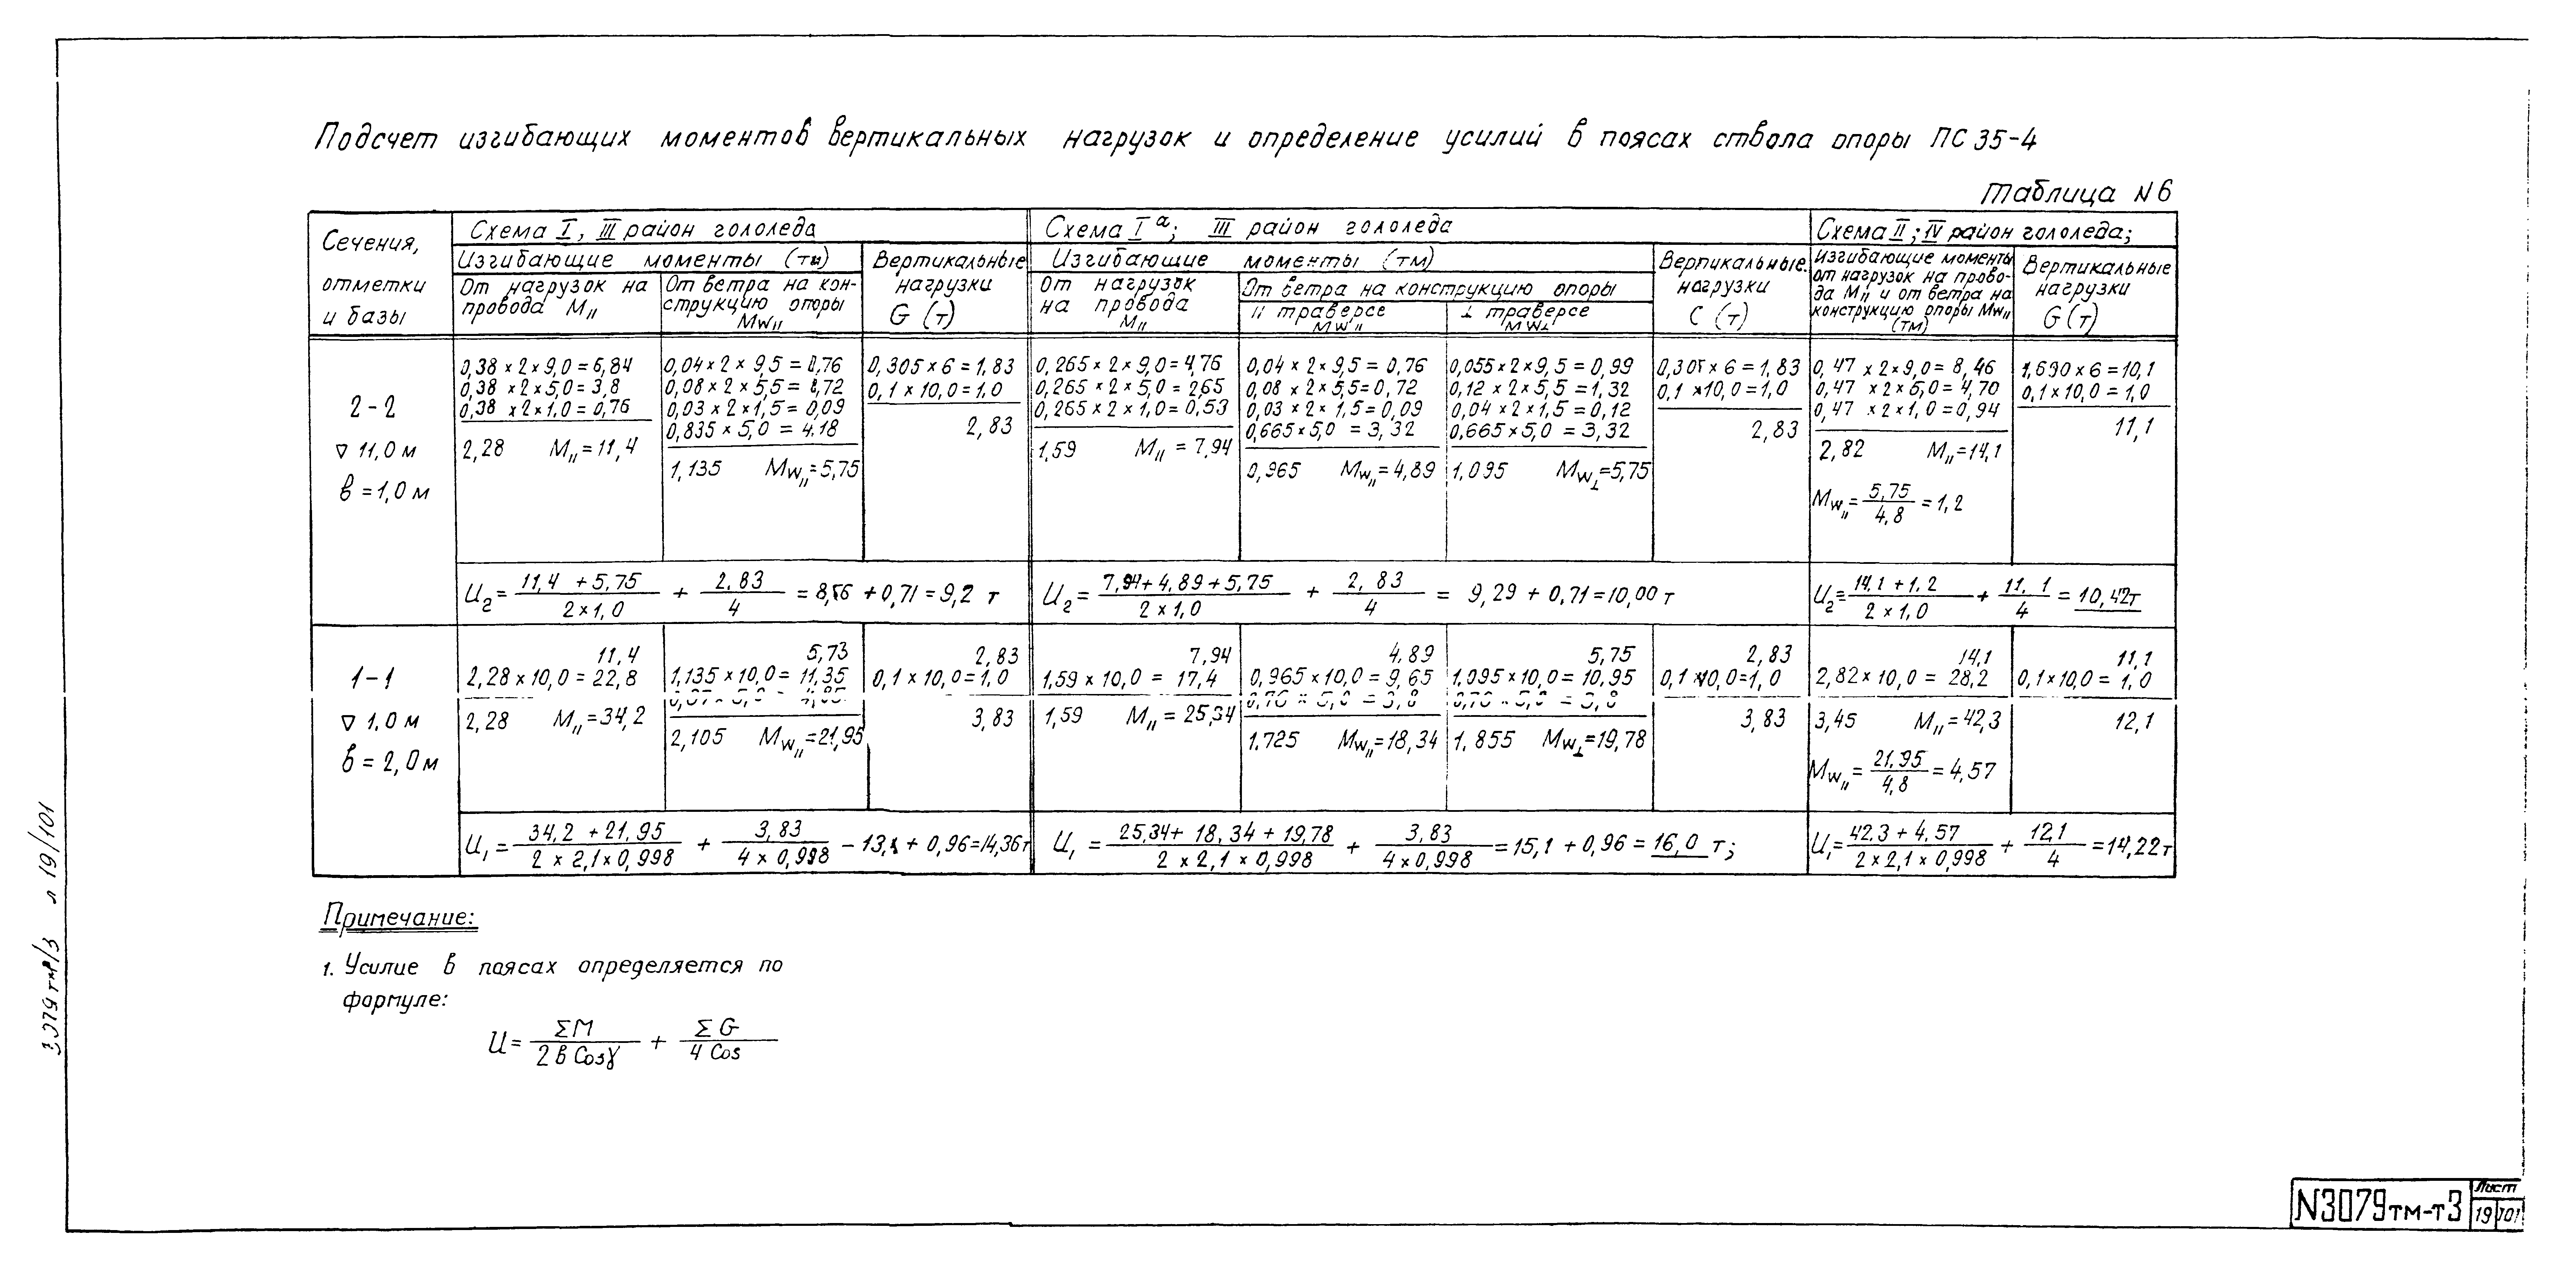 Подсчет изгибающих моментов вертикальных нагрузок и определение усилий в поясах ствола опоры ПС 35-4
Таблица N 6
Сечения, отметки и базы
Схема I, III район гололеда
Схема I а; III район гололеда
Схема II; IV район гололеда;
Изгибающие моменты (тм)
Вертикальные нагрузки G (т)
Изгибающие моменты (тм)
Вертикальные нагрузки C (т)
Изгибающие моменты от нагрузок на провода M॥ и от ветра на конструкцию опоры Mw॥ (тм)
Вертикальные нагрузки G (т)
От нагрузок на провода M॥
От ветра на конструкцию опоры Mw॥
От нагрузок на провода M॥
От ветра на конструкцию опоры
॥ траверсе Mw॥
⊥ траверсе Mw⊥
2-2
▽ 11,0 м
в = 1,0 м
0,38 × 2 × 9,0 = 6,84
0,38 × 2 × 5,0 = 3,8
0,38 × 2 × 1,0 = 0,76
2,28 M॥ = 11,4
0,04 × 2 × 9,5 = 0,76
0,08 × 2 × 5,5 = 0,72
0,03 × 2 × 1,5 = 0,09
0,835 × 5,0 = 4.18
1,135 Mw॥ = 5,75
0,305 × 6 = 1,83
0,1 × 10,0 = 1,0
2,83
0,265 × 2 × 9,0 = 4,76
0,265 × 2 × 5,0 = 2,65
0,265 × 2 × 1,0 = 0,53
1,59 M॥ = 7,94
0,04 × 2 × 9,5 = 0,76
0,08 × 2 × 5,5 = 0,72
0,03 × 2 × 1,5 = 0,09
0,665 × 5,0 = 3,32
0,965 Mw॥ = 4,89
0,055 × 2 × 9,5 = 0,99
0,12 × 2 × 5,5 = 1,32
0,04 × 2 × 1,5 = 0,12
0,665 × 5,0 = 3,32
1,095 Mw⊥ = 5,75
0,305 × 6 = 1,83
0,1 × 10,0 = 1,0
2,83
0,47 × 2 × 9,0 = 8,46
0,47 × 2 × 5,0 = 4,70
0,47 × 2 × 1,0 = 0,94
2,82 M॥ = 14,1
Mw॥ = 5,75 / 4,8 = 1,2
1,690 × 6 = 10,1
0,1 × 10,0 = 1,0
11,1
U2 = 11,4 + 5,75 / 2 × 1,0 + 2,83 / 4 = 8,56 + 0,71 = 9,2 т
U2 = 7,94 + 4,89 + 5,75 / 2 × 1,0 + 2,83 / 4 = 9,29 + 0,71 = 10,00 т
U2 = 14,1 + 1,2 / 2 × 1,0 + 11,1 / 4 = 10,42т
1-1
▽ 1,0 м
в = 2,0 м
11,4
2,28 × 10,0 = 22,8
2,28 M॥ = 34,2
5,73
1,135 × 10,0 = 11,35
2,105 Mw॥ = 21,95
2,83
0,1 × 10,0 = 1,0
3,83
7,94
1,59 × 10,0 = 17,4
1,59 M॥ = 25,34
4,89
0,965 × 10,0 = 9,65
0,76 × 5,0 = 3,8
1,725 Mw॥ = 18,34
5,75
1,095 × 10,0 = 10,95
0,76 × 5,0 = 3,8
1,855 Mw⊥ = 19,78
2,83
0,1 × 10,0 = 1,0
3,83
14,1
2,82 × 10,0 = 28,2
3,45 M॥ = 42,3
Mw॥ = 21,95 / 4,8 = 4,57
11,1
0,1 × 10,0 = 1,0
12,1
U1 = 34,2 + 21,95 / 2 × 2,1 × 0,998 + 3,83 / 4 × 0,998 – + 0,96 = 14,36т
U1 = 25,34 + 18,34 + 19,78 / 2 × 2,1 × 0,998 + 3,83 / 4 × 0,998 = 15,1 + 0,96 = 16,0 т;
U1 = 42.3 + 4,57 / 2 × 2,1 × 0,998 + 12,1 / 4 = 14,22т
Примечание:
1. Усилие в поясах определяется по
формуле:
U = ΣM / 2в Cosγ + ΣG / 4 Cos
3079тм/3 л 19/101
N3079тм-т3
Лист
19 101